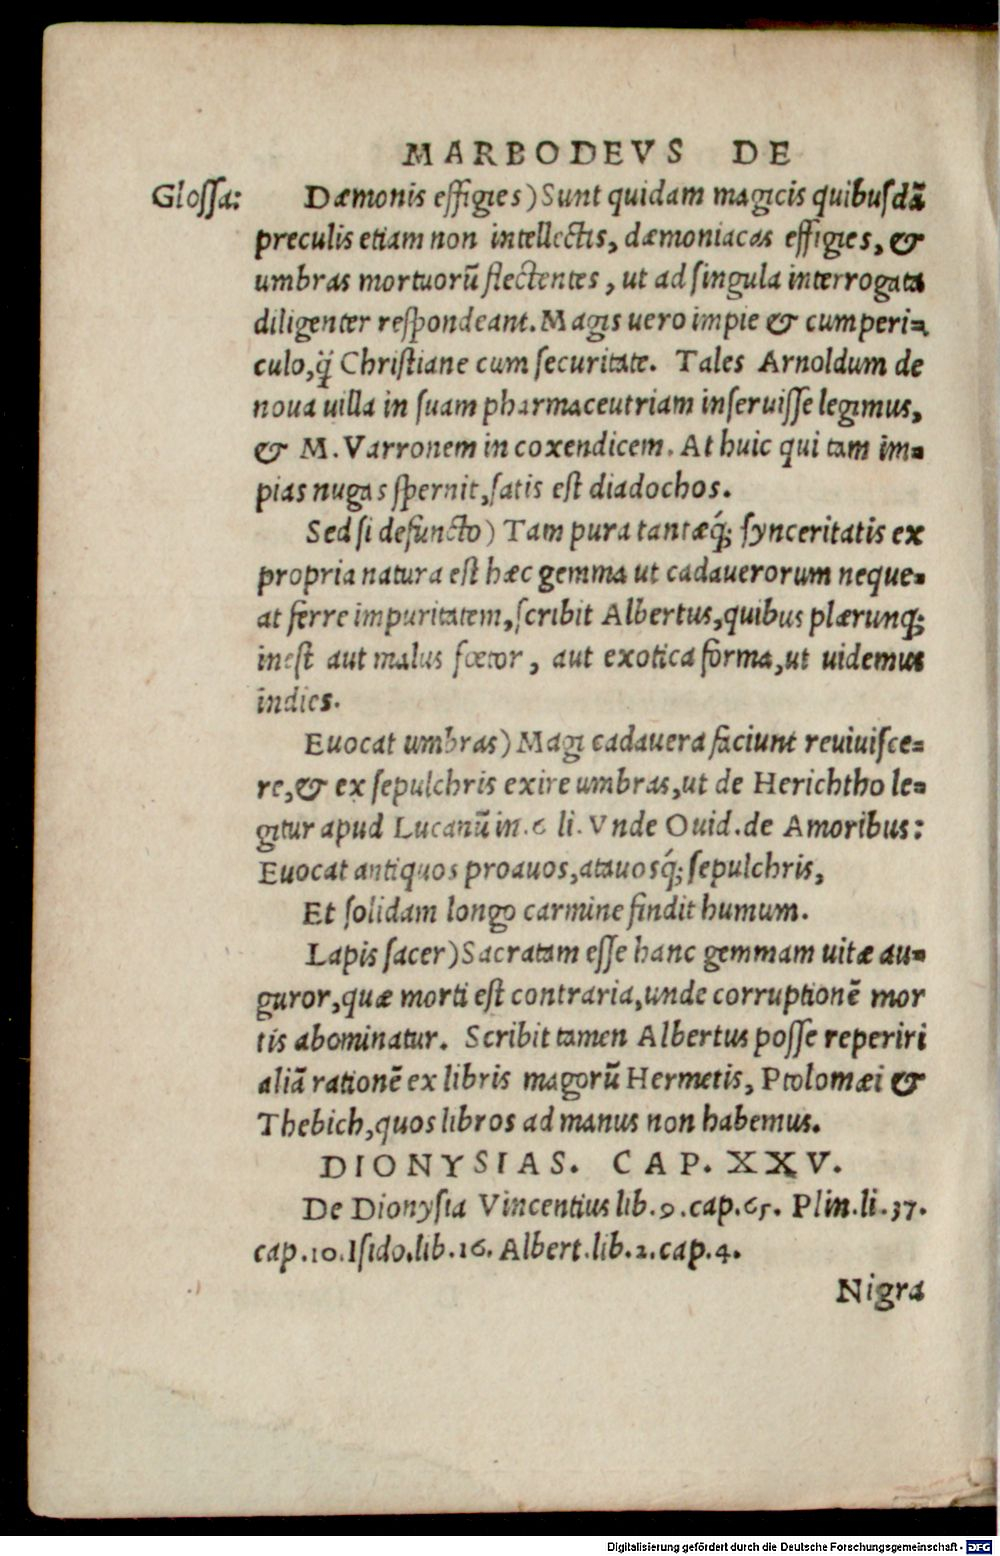 MARBODEVS DE
Glossa:
Dæmonis effigies) Sunt quidam magicis quibusdā
preculis etiam non intellectis, dæmoniacas effigies, &
umbras mortuorū flectentes, ut ad singula interrogata
diligenter respondeant. Magis uero impie & cum peri-
culo, q̃ Christiane cum securitate. Tales Arnoldum de
noua uilla in suam pharmaceutriam inseruisse legimus,
& M. Varronem in coxendicem. At huic qui tam im-
pias nugas spernit, satis est diadochos.
Sed si defuncto) Tam pura tantæq́; synceritatis ex
propria natura est hæc gemma ut cadauerorum neque-
at ferre impuritatem, scribit Albertus, quibus plærunq;
inest aut malus fœtor, aut exotica forma, ut uidemus
indies.
Euocat umbras) Magi cadauera faciunt reuiuisce-
re, & ex sepulchris exire umbras, ut de Herichtho le-
gitur apud Lucanū in .6 li. Vnde Ouid. de Amoribus:
Euocat antiquos proauos, atauosq́; sepulchris,
Et solidam longo carmine findit humum.
Lapis sacer) Sacratam esse hanc gemmam uitæ au-
guror, quæ morti est contraria, unde corruptionē mor
tis abominatur. Scribit tamen Albertus posse reperiri
aliā rationē ex libris magorū Hermetis, Ptolomæi &
Thebich, quos libros ad manus non habemus.
DIONYSIAS. CAP. XXV.
De Dionysia Vincentius lib. 9. cap. 65. Plin. li. 37.
cap. 10. Isido. lib. 16. Albert. lib. 2. cap. 4.
Nigra
Digitalisierung gefördert durch die Deutsche Forschungsgemeinschaft - DFG